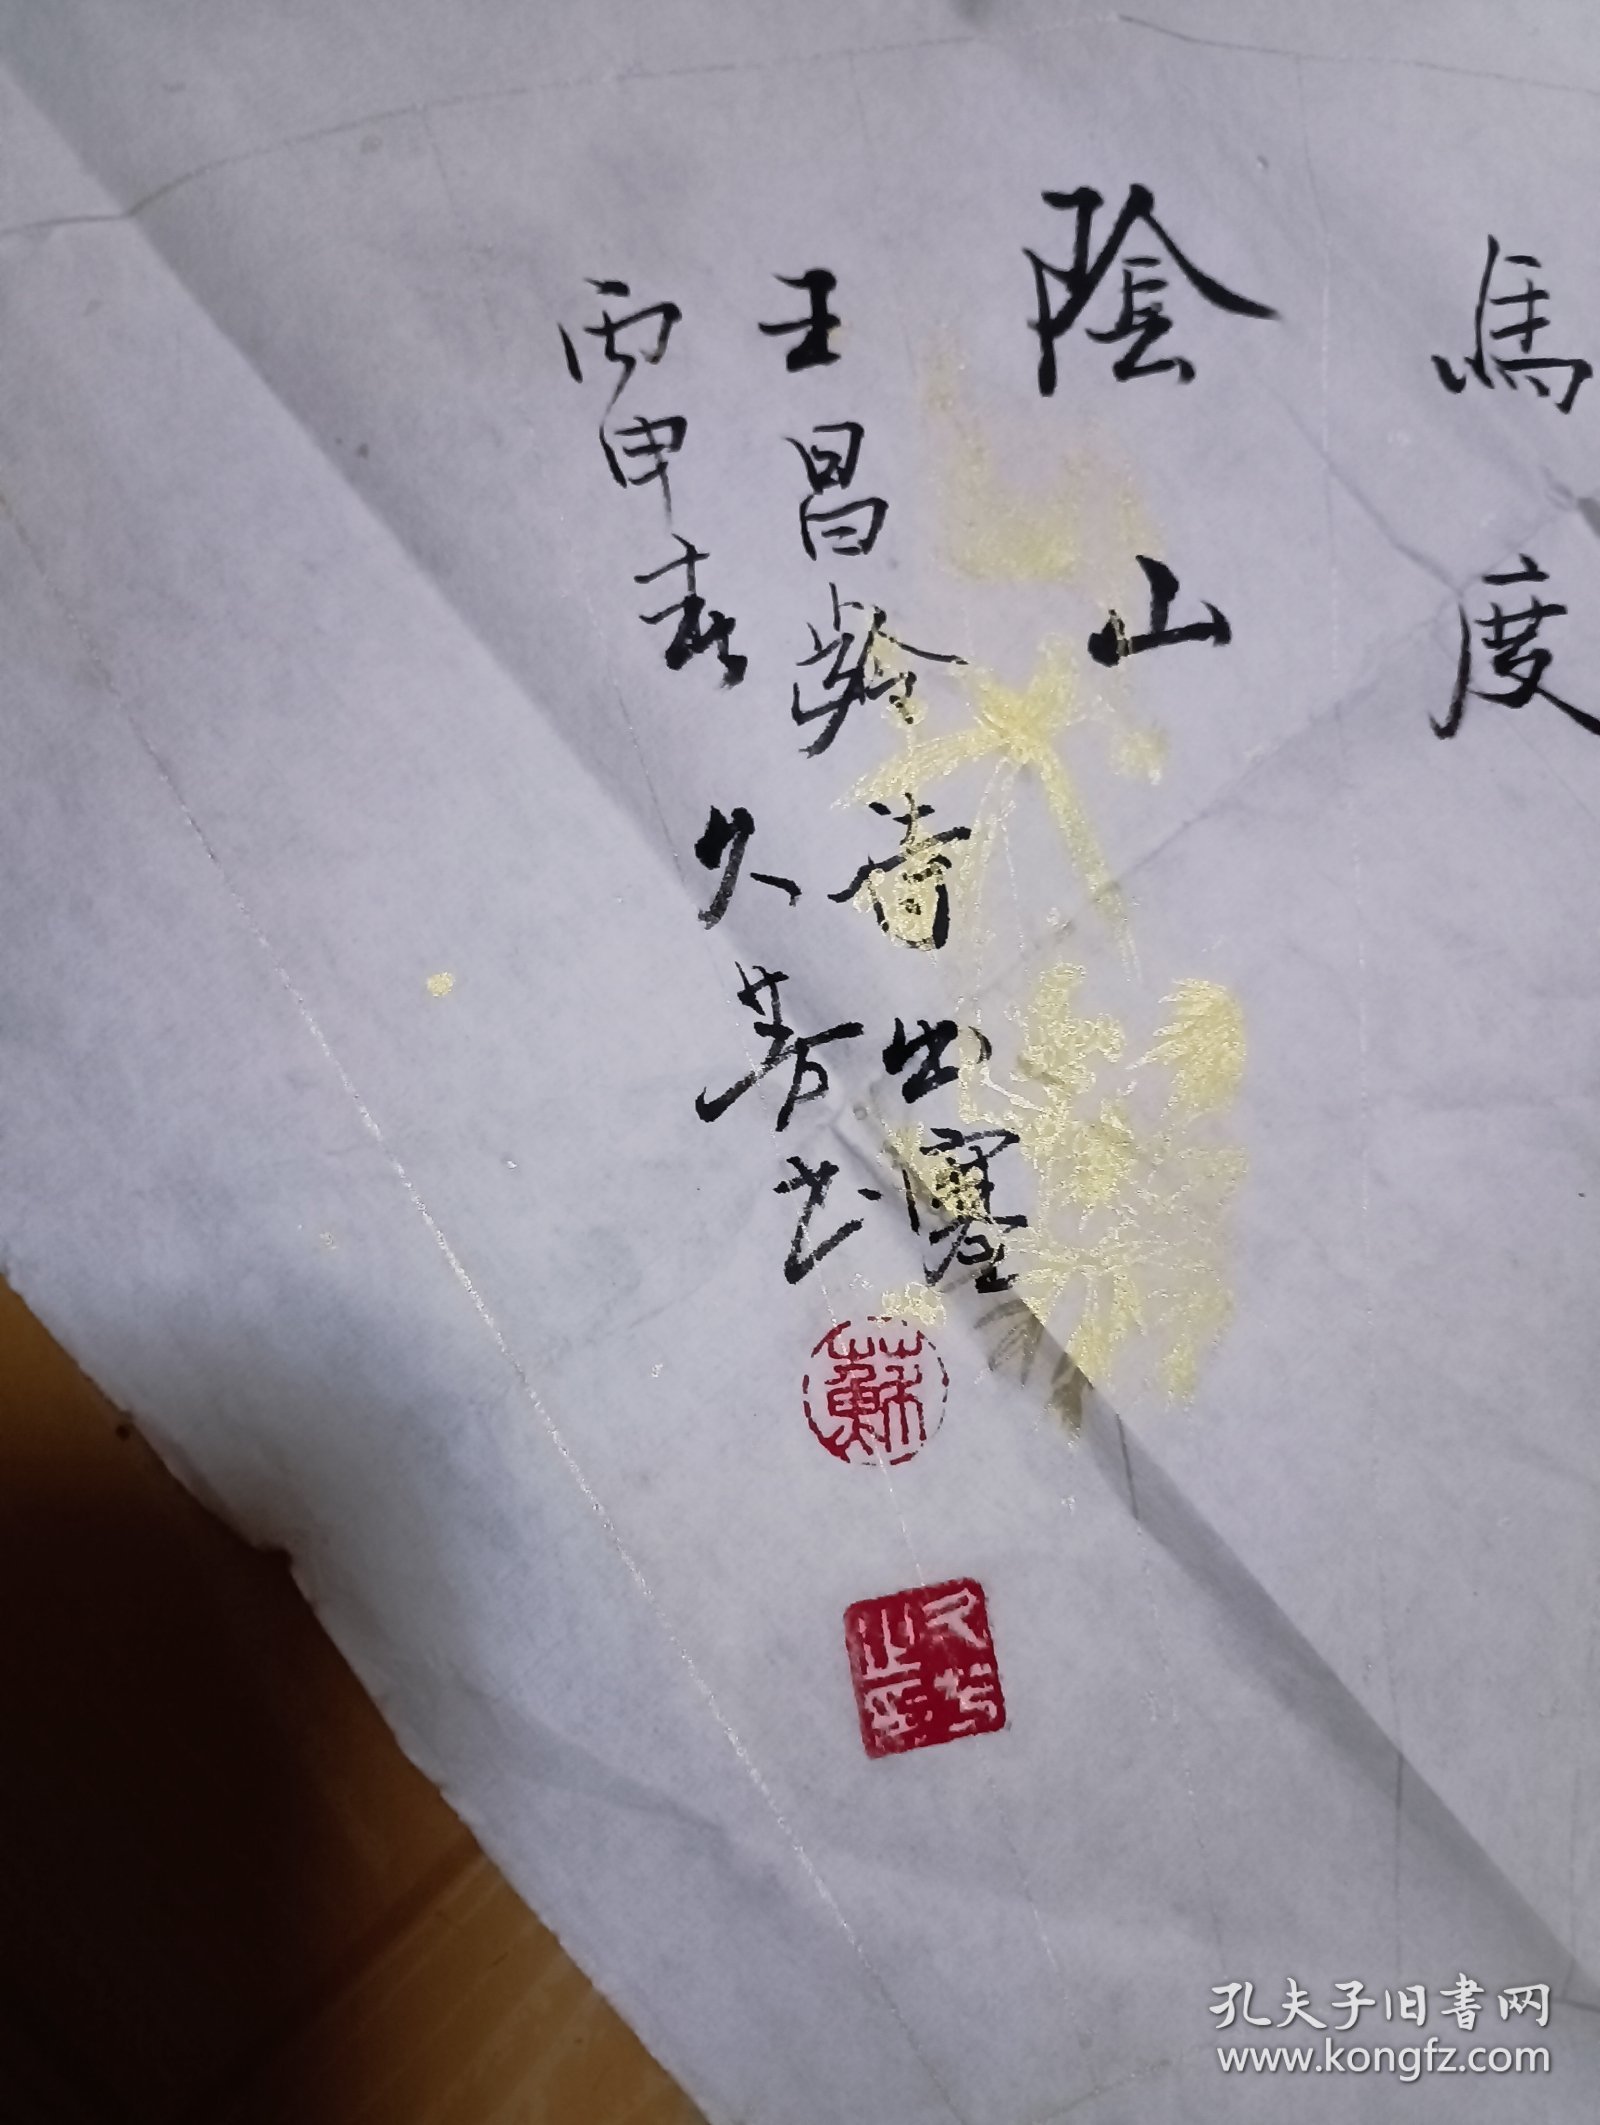 馬度
陰山
王昌龄诗出塞
丙申春久芳书
蘇
久芳之
孔夫子旧书网
www.kongfz.com